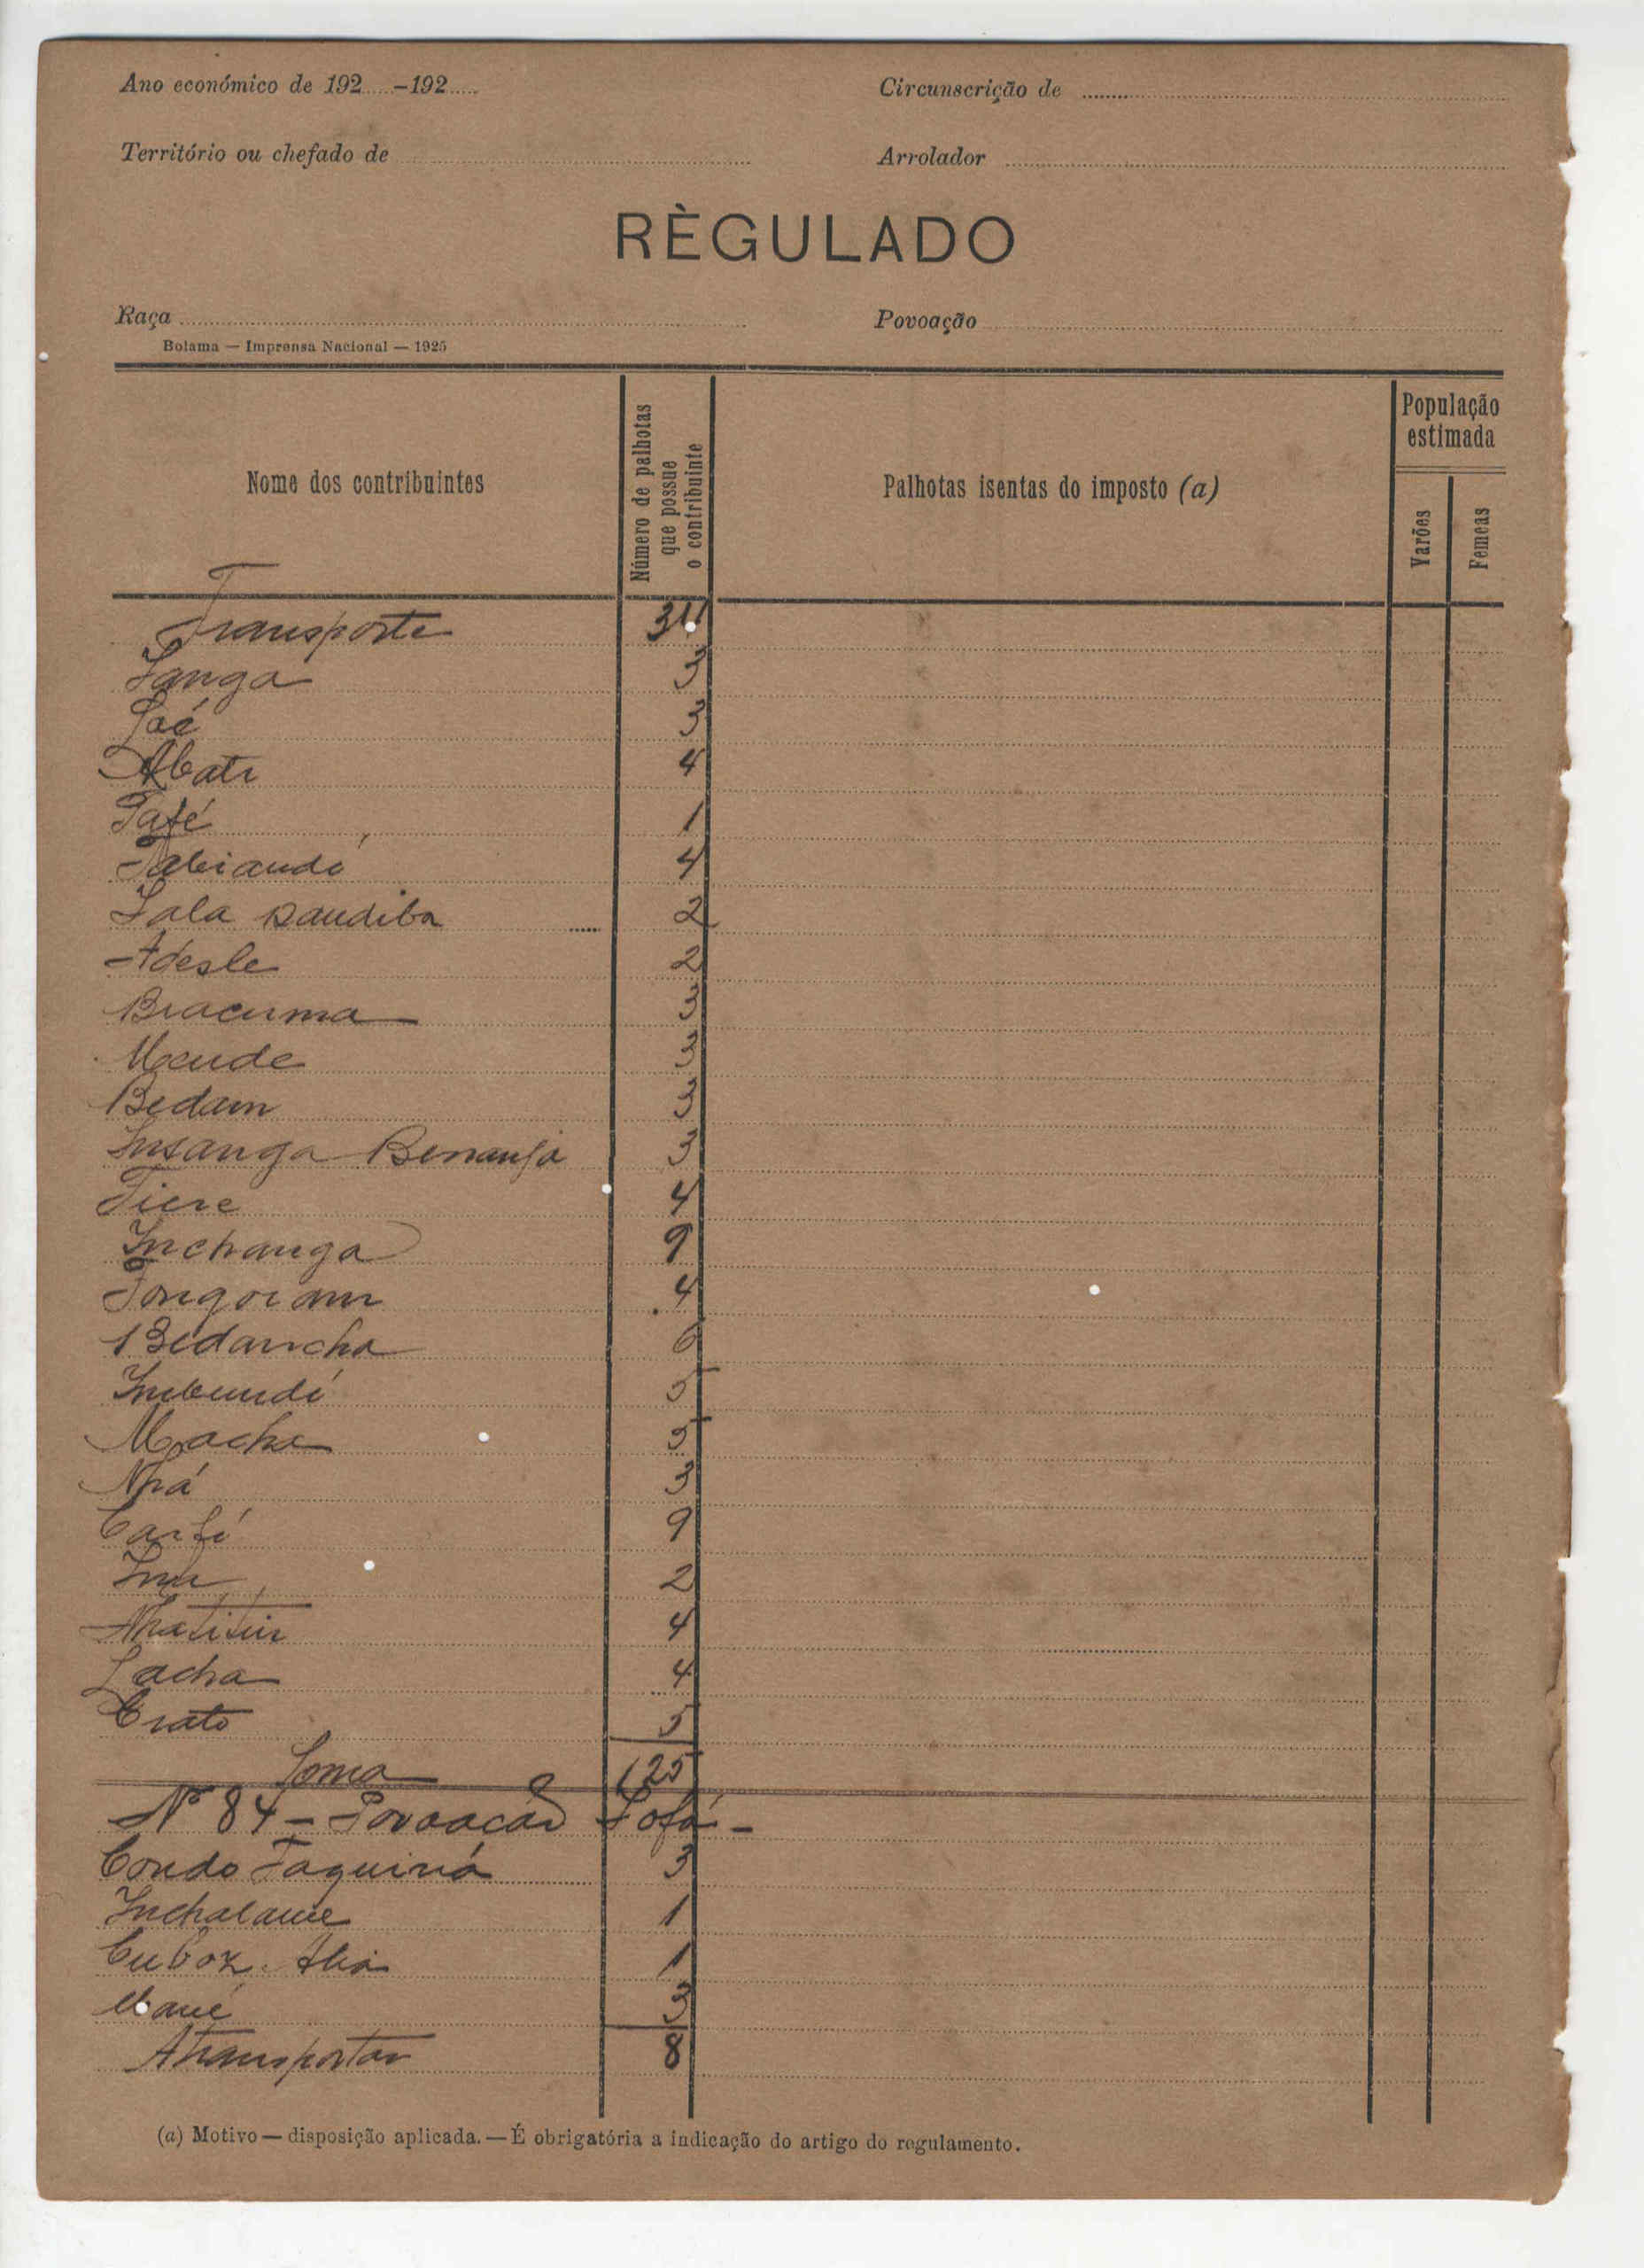 Ano económico de 192.....-192.....
Circunscrição de
Território ou chefado de
Arrolador
RÈGULADO
Raça
Povoação
Bolama — Imprensa Nacional — 1925
Nome dos contribuintes
Número de palhotas que possue o contribuinte
Palhotas isentas do imposto (a)
População estimada
Varões
Femeas
Transporte
Sanga 3
3
Abati 4
Tafé 1
Fabiandó 4
Lala 2
Adesle 2
Bracuma 3
Mende 3
Bedam 3
Insanga Benanfa 3
Tiere 4
Inchanga 9
4
Bidancha 6
Imbundi 5
Macha 5
Nhá 3
9
2
Nhatitin 4
Lacha 4
Crato 5
Soma 125
Nº 84 - Povoação Fofá -
Condo Faquiná 3
Inchalame 1
1
Mané 3
A transportar 8
(a) Motivo — disposição aplicada. — É obrigatória a indicação do artigo do regulamento.